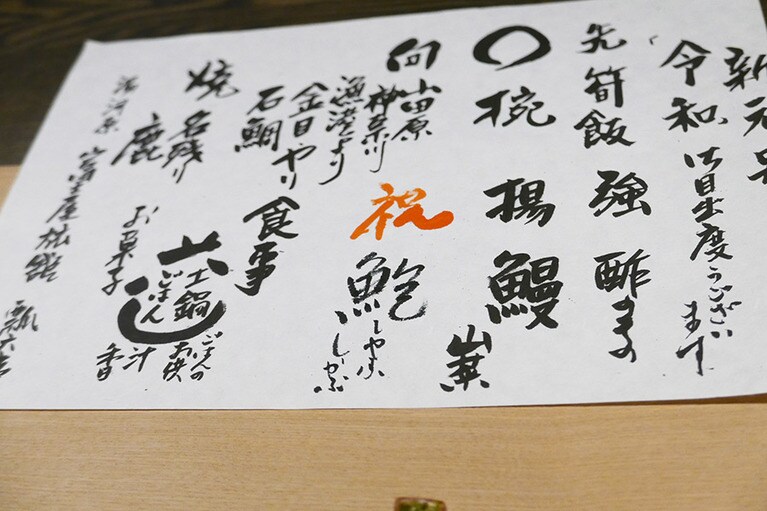 新元号
令和 御目出度うございます
先 筍飯 強 酢もの
椀 揚 鰻
山葉
向 小田原
神奈川
漁港より
祝 鮑 しゃぶしゃぶ
金目 やり
石鯛
食事
焼 名残り
鹿
土鍋
ごはん
ごはんの
お供
汁
香
お菓子
湯河原 富士屋旅館 瓢六亭